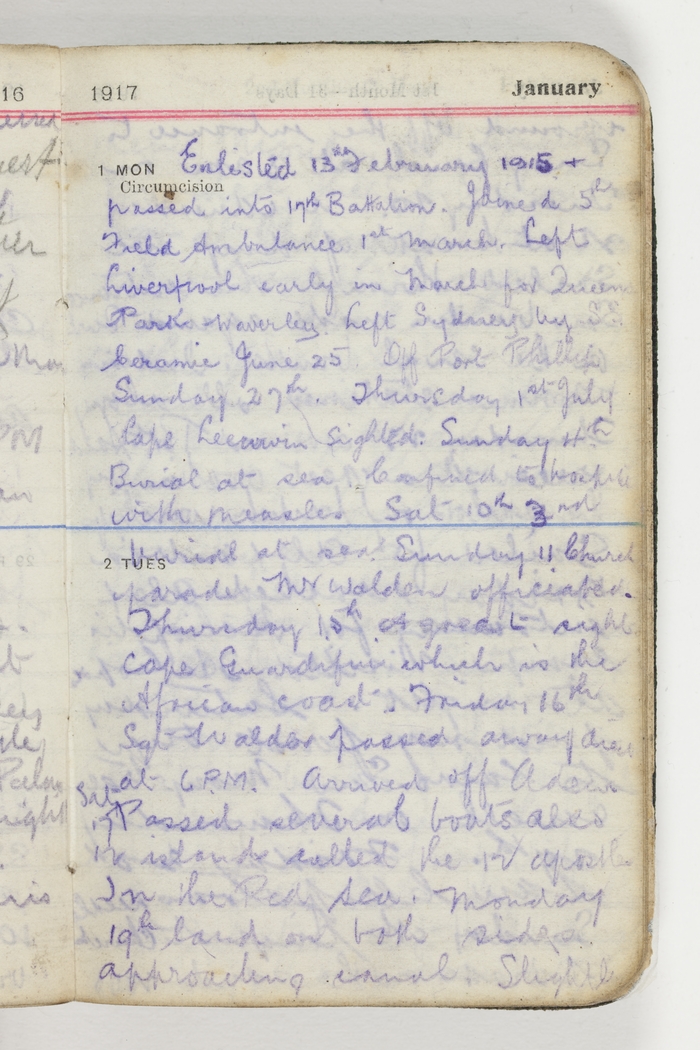 16
1917 January
1 MON Enlisted 13th February 1915 +
Circumcision
passed into 17th Battalion. Joined 5th
Field Ambulance 1st March. Left
Liverpool early in March for Queens
Park Waverley. Left Sydney by
Ceramic June 25. Off Port Phillip
Sunday 27th. Thursday 1st July
Cape Leeuwin Sighted. Sunday 4th
Burial at sea Confined to Hospital
with measles Sat 10th 2nd
2 TUES burial at sea. Sunday 11 Church
parade. Mr Walden officiated.
Thursday 15th A great sight
Cape Guardifui which is the
African coast. Friday 16th
Sgt Walden passed away died
at 6 P.M. Arrived off Aden
Sat
17 Passed several boats also
12 islands called the 12 apostles
In the Red Sea. Monday
19th land on both sides
approaching canal. Slight